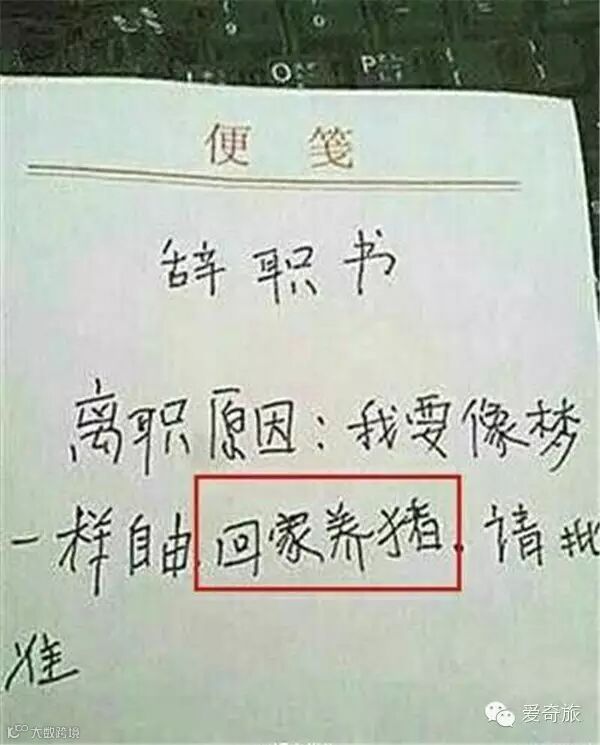 O P
便 笺
辞职书
离职原因:我要像梦
一样自由,回家养猪.请批
准
大数跨境
爱奇旅